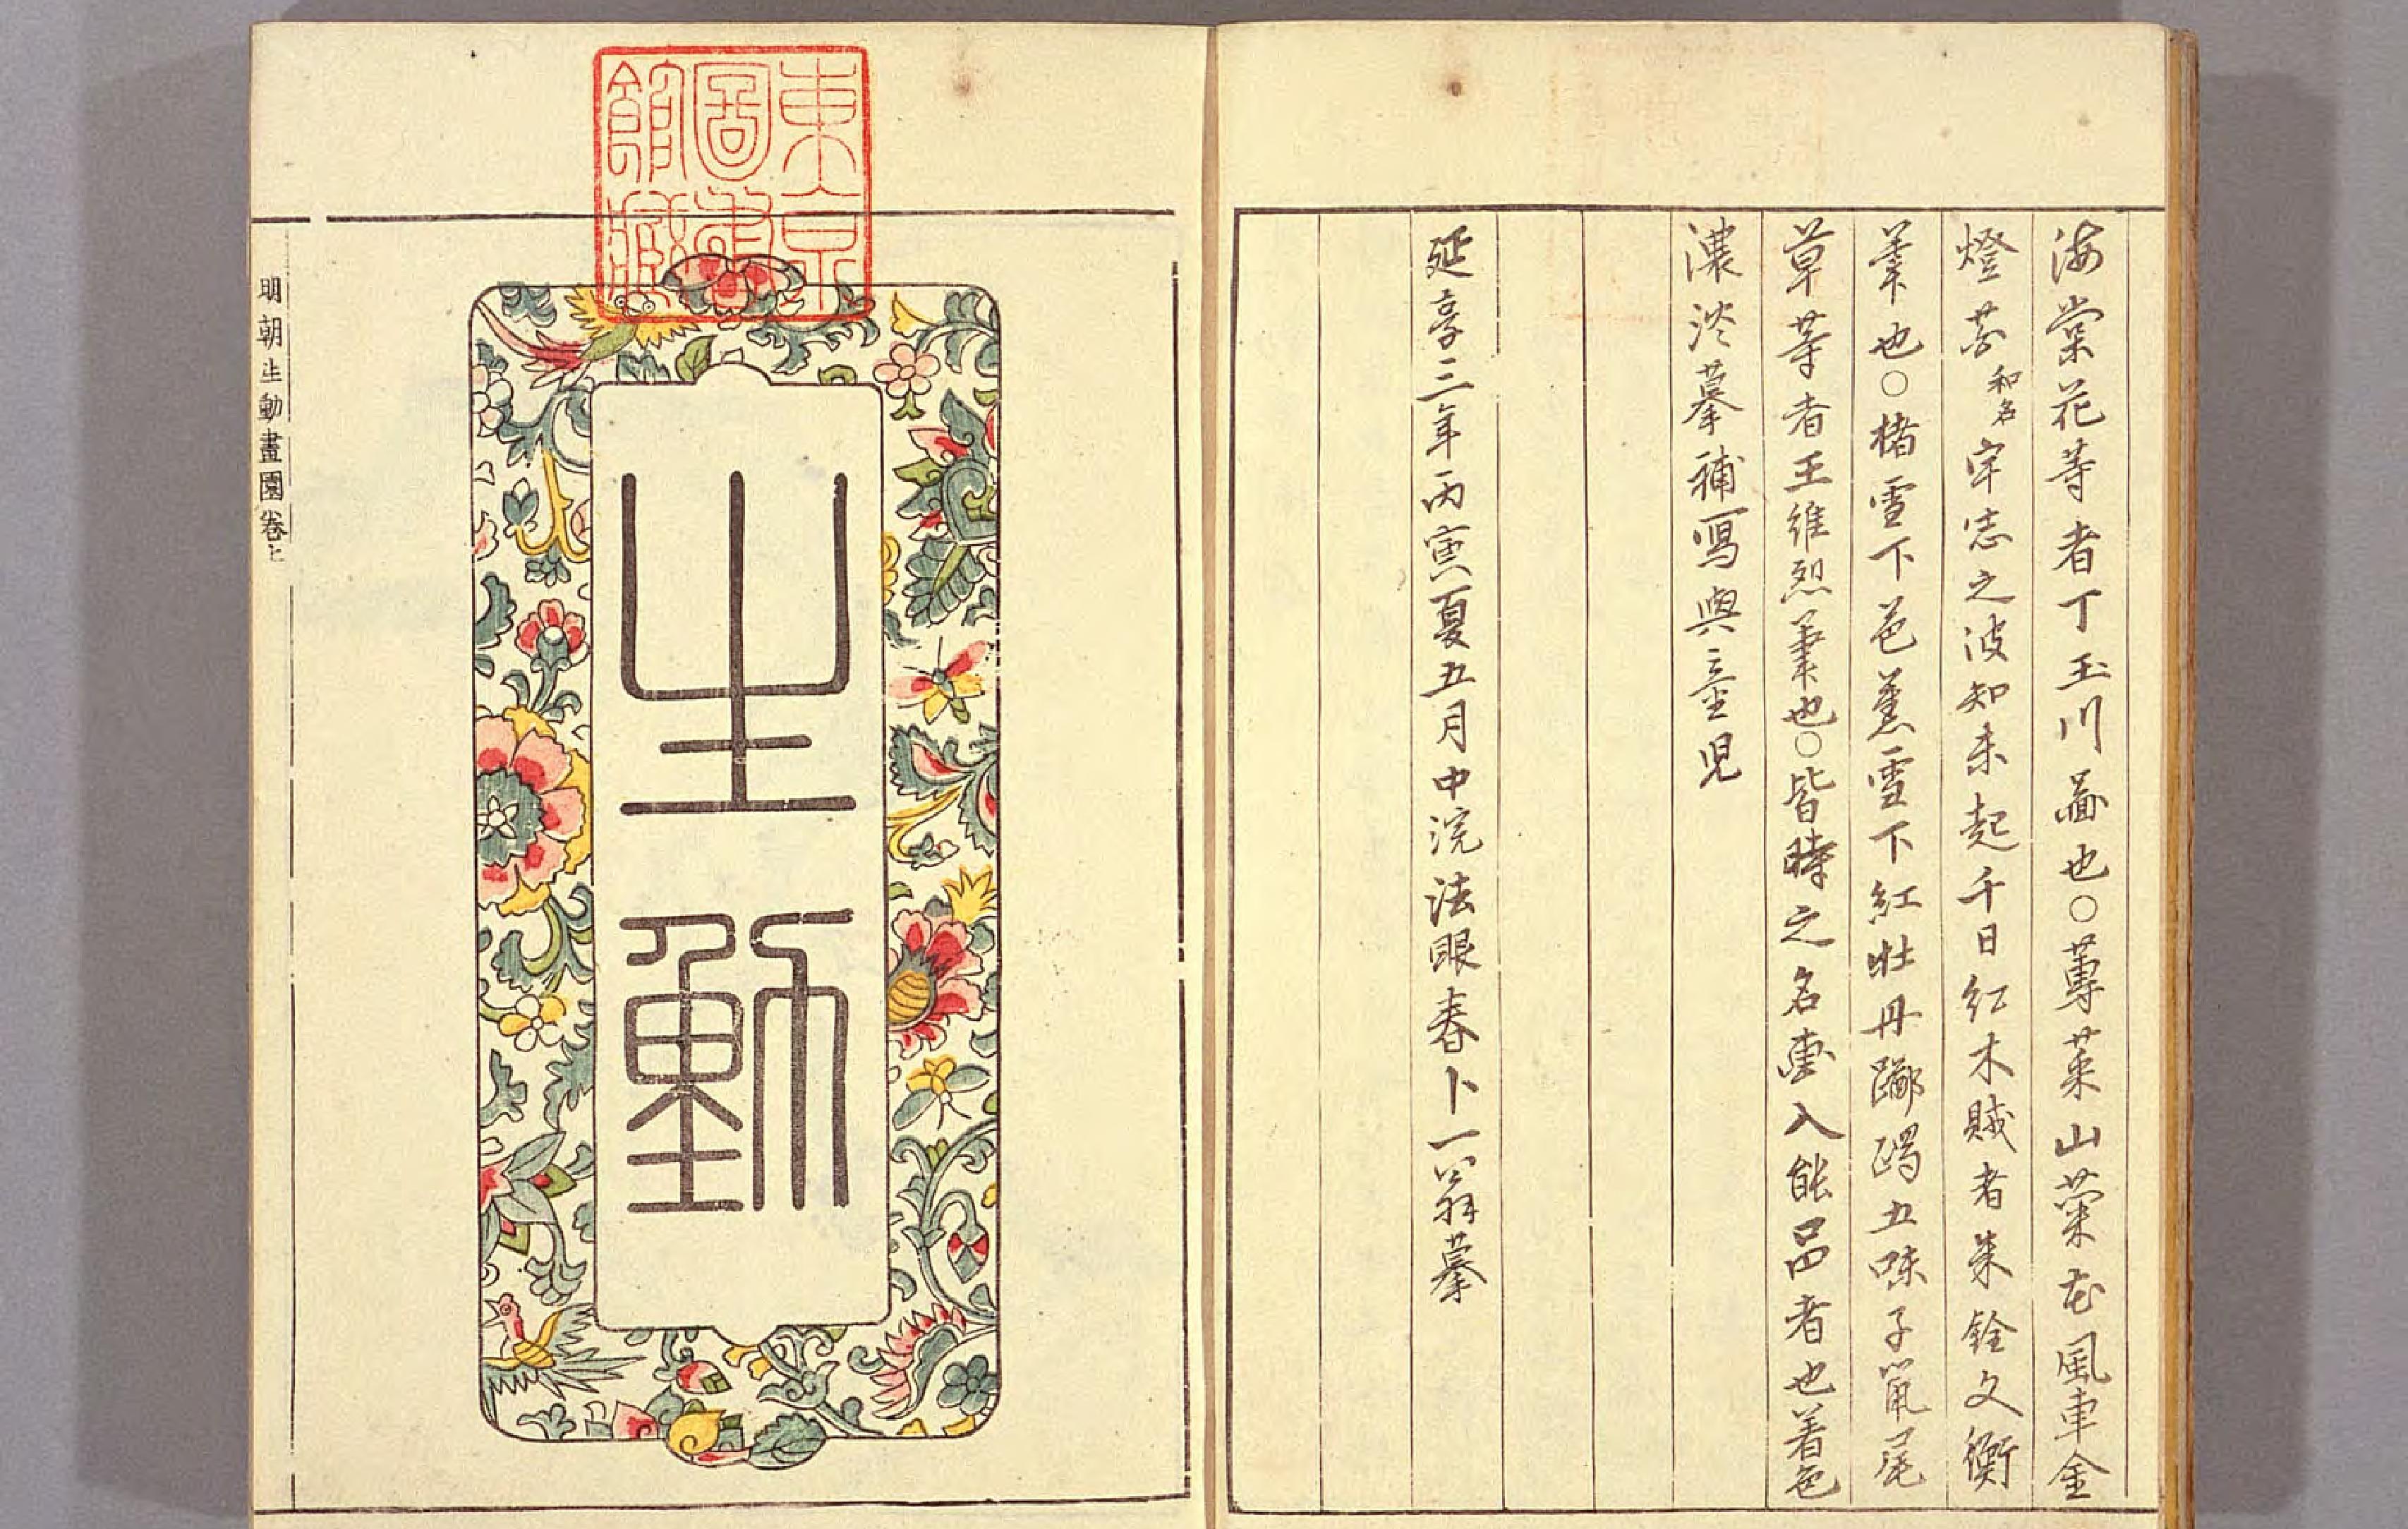 海棠花等者丁玉川畵也○蓴菜山茶花風車金
燈草和名宇志之波知末起千日紅木賊者朱銓文衡
筆也○楮雪下芭蕉雪下紅牡丹躑躅五味子鼠尾
草等者王維烈筆也○皆時之名畫入能品者也着色
濃淡摹補寫與童児
延享三年丙寅夏五月中浣法眼春卜一翁摹
東京
圖書
館藏
生動
明朝生動畫園卷上